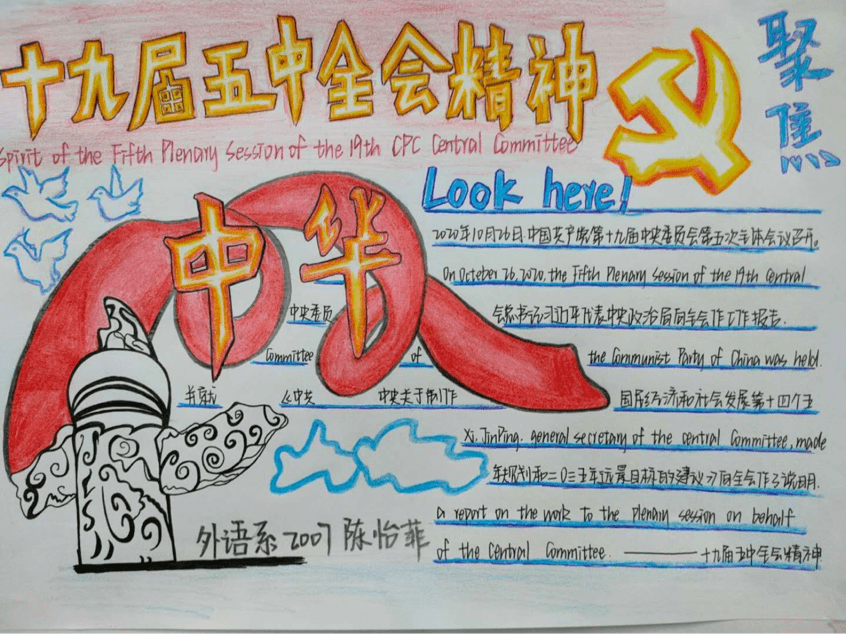 十九届五中全会精神
聚焦
Spirit of the Fifth Plenary Session of the 19th CPC Central Committee
Look here!
中华
2020年10月26日中国共产党第十九届中央委员会第五次全体会议召开。
On October 26.2020.the Fifth Plenary Session of the 19th Central
中央委员 会总书记习近平代表中央政治局向全会作工作报告.
Committee of the Communist Party of China was held.
并就 《中共 中央关于制作 国民经济和社会发展第十四个五
Xi.JinPing. general secretary of the central Committee, made
年规划和二〇三五年远景目标的建议 向全会作了说明.
a report on the work to the plenary session on behalf
of the Central Committee. ——— 十九届五中全会精神
外语系2007 陈怡菲